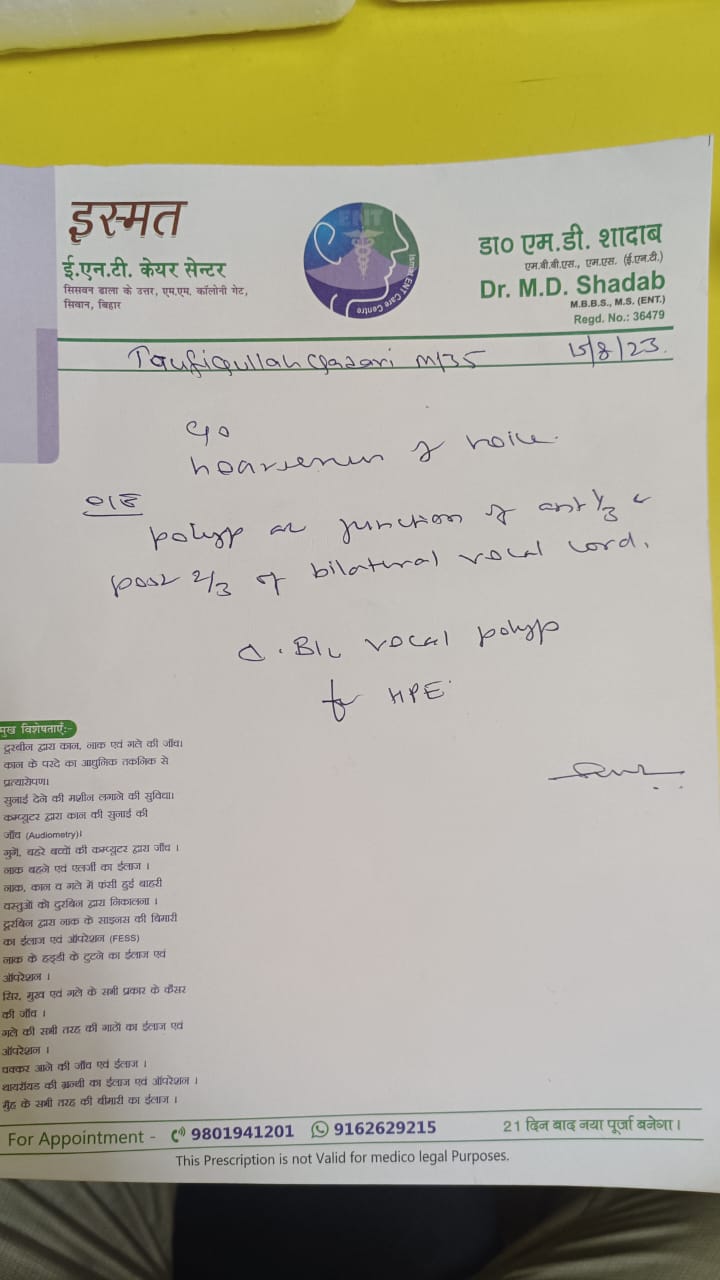 इस्मत
ई.एन.टी. केयर सेन्टर
सिसवन ढाला के उत्तर, एम.एम. कॉलोनी गेट,
सिवान, बिहार
ENT
Ismat ENT Care Centre
डा० एम.डी. शादाब
एम.बी.बी.एस., एम.एस. (ई.एन.टी.)
Dr. M.D. Shadab
M.B.B.S., M.S. (ENT.)
Regd. No.: 36479
Taufiqullah M/35 15/8/23.
C/o
hoarseness of voice.
O/E
polyp at junction of ant 1/3 &
post 2/3 of bilateral vocal cord.
Δ. B/L vocal polyp
for HPE
मुख विशेषताएँ:-
दूरबीन द्वारा कान, नाक एवं गले की जाँच।
कान के परदे का आधुनिक तकनिक से
प्रत्यारोपण।
सुनाई देने की मशीन लगाने की सुविधा।
कम्प्यूटर द्वारा कान की सुनाई की
जाँच (Audiometry)।
गुगें, बहरे बच्चों की कम्प्यूटर द्वारा जाँच ।
नाक बहने एवं एलर्जी का ईलाज ।
नाक, कान व गले में फंसी हुई बाहरी
वस्तुओं को दुरबिन द्वारा निकालना ।
दूरबिन द्वारा नाक के साइनस की बिमारी
का ईलाज एवं ऑपरेशन (FESS)
नाक के हड्डी के टुटने का ईलाज एवं
ऑपरेशन ।
सिर, मुख एवं गले के सभी प्रकार के कैंसर
की जाँच ।
गले की सभी तरह की गाठों का ईलाज एवं
ऑपरेशन ।
चक्कर आने की जाँच एवं ईलाज ।
थायरॉयड की ग्रन्थी का ईलाज एवं ऑपरेशन ।
मुँह के सभी तरह की बीमारी का ईलाज ।
For Appointment - 9801941201 9162629215 21 दिन बाद नया पूर्जा बनेगा।
This Prescription is not Valid for medico legal Purposes.